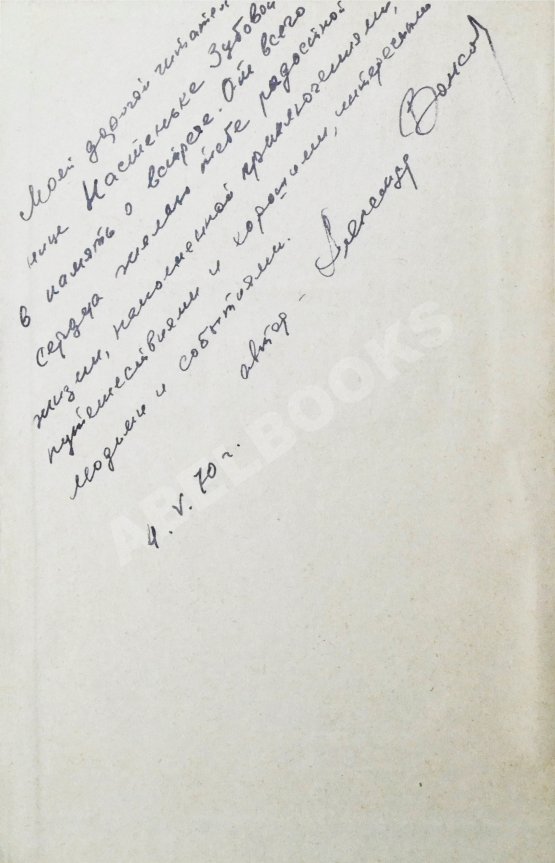 Моей дорогой читатель
нице Настеньке Зубовой
в память о встрече. От всего
сердца желаю тебе радостной
жизни, наполненной приключениями,
путешествиями и хорошими, интересными
людьми и событиями.
автор – Александр
4.V.70 г.
ABELBOOKS